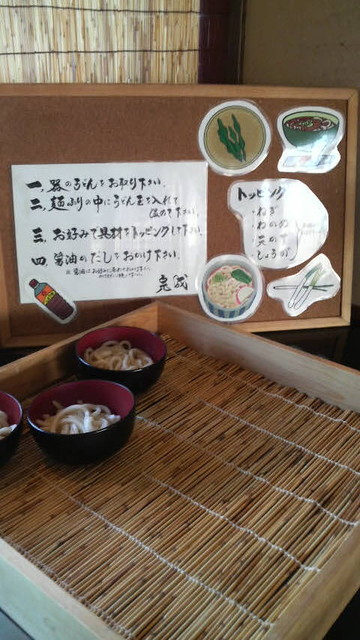 一、器のうどんをお取り下さい。
二、麺ふりの中にうどん玉を入れて
温めて下さい。
三、お好みで具材をトッピングして下さい。
四、醤油かだしでおかけ下さい。
完成
トッピング
・ねぎ
・わかめ
・天かす
・しょうが